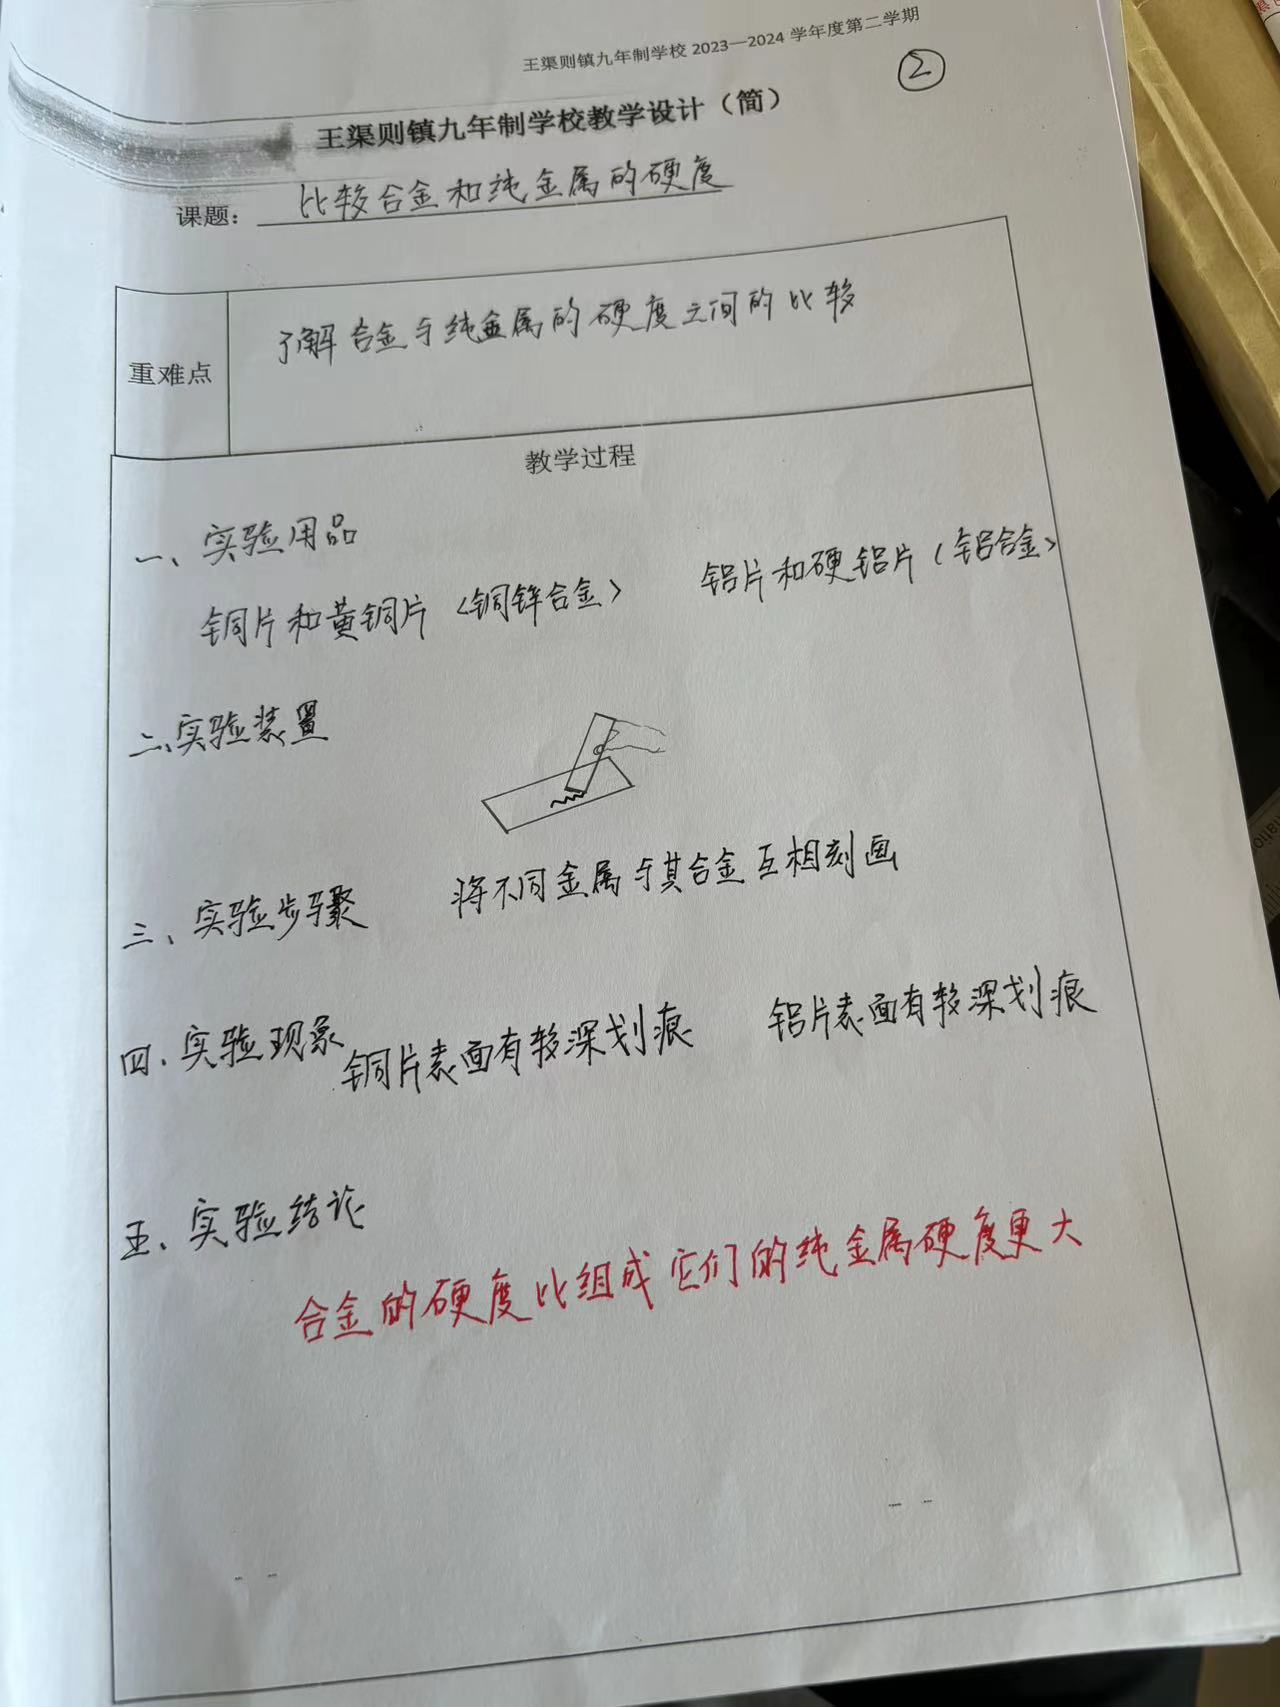 王渠则镇九年制学校 2023—2024 学年度第二学期
②
王渠则镇九年制学校教学设计（简）
课题： 比较合金和纯金属的硬度
重难点 了解合金与纯金属的硬度之间的比较
教学过程
一、实验用品
铜片和黄铜片（铜锌合金） 铝片和硬铝片（铝合金）
二、实验装置
三、实验步骤 将不同金属与其合金互相刻画
四、实验现象 铜片表面有较深划痕 铝片表面有较深划痕
五、实验结论
合金的硬度比组成它们的纯金属硬度更大